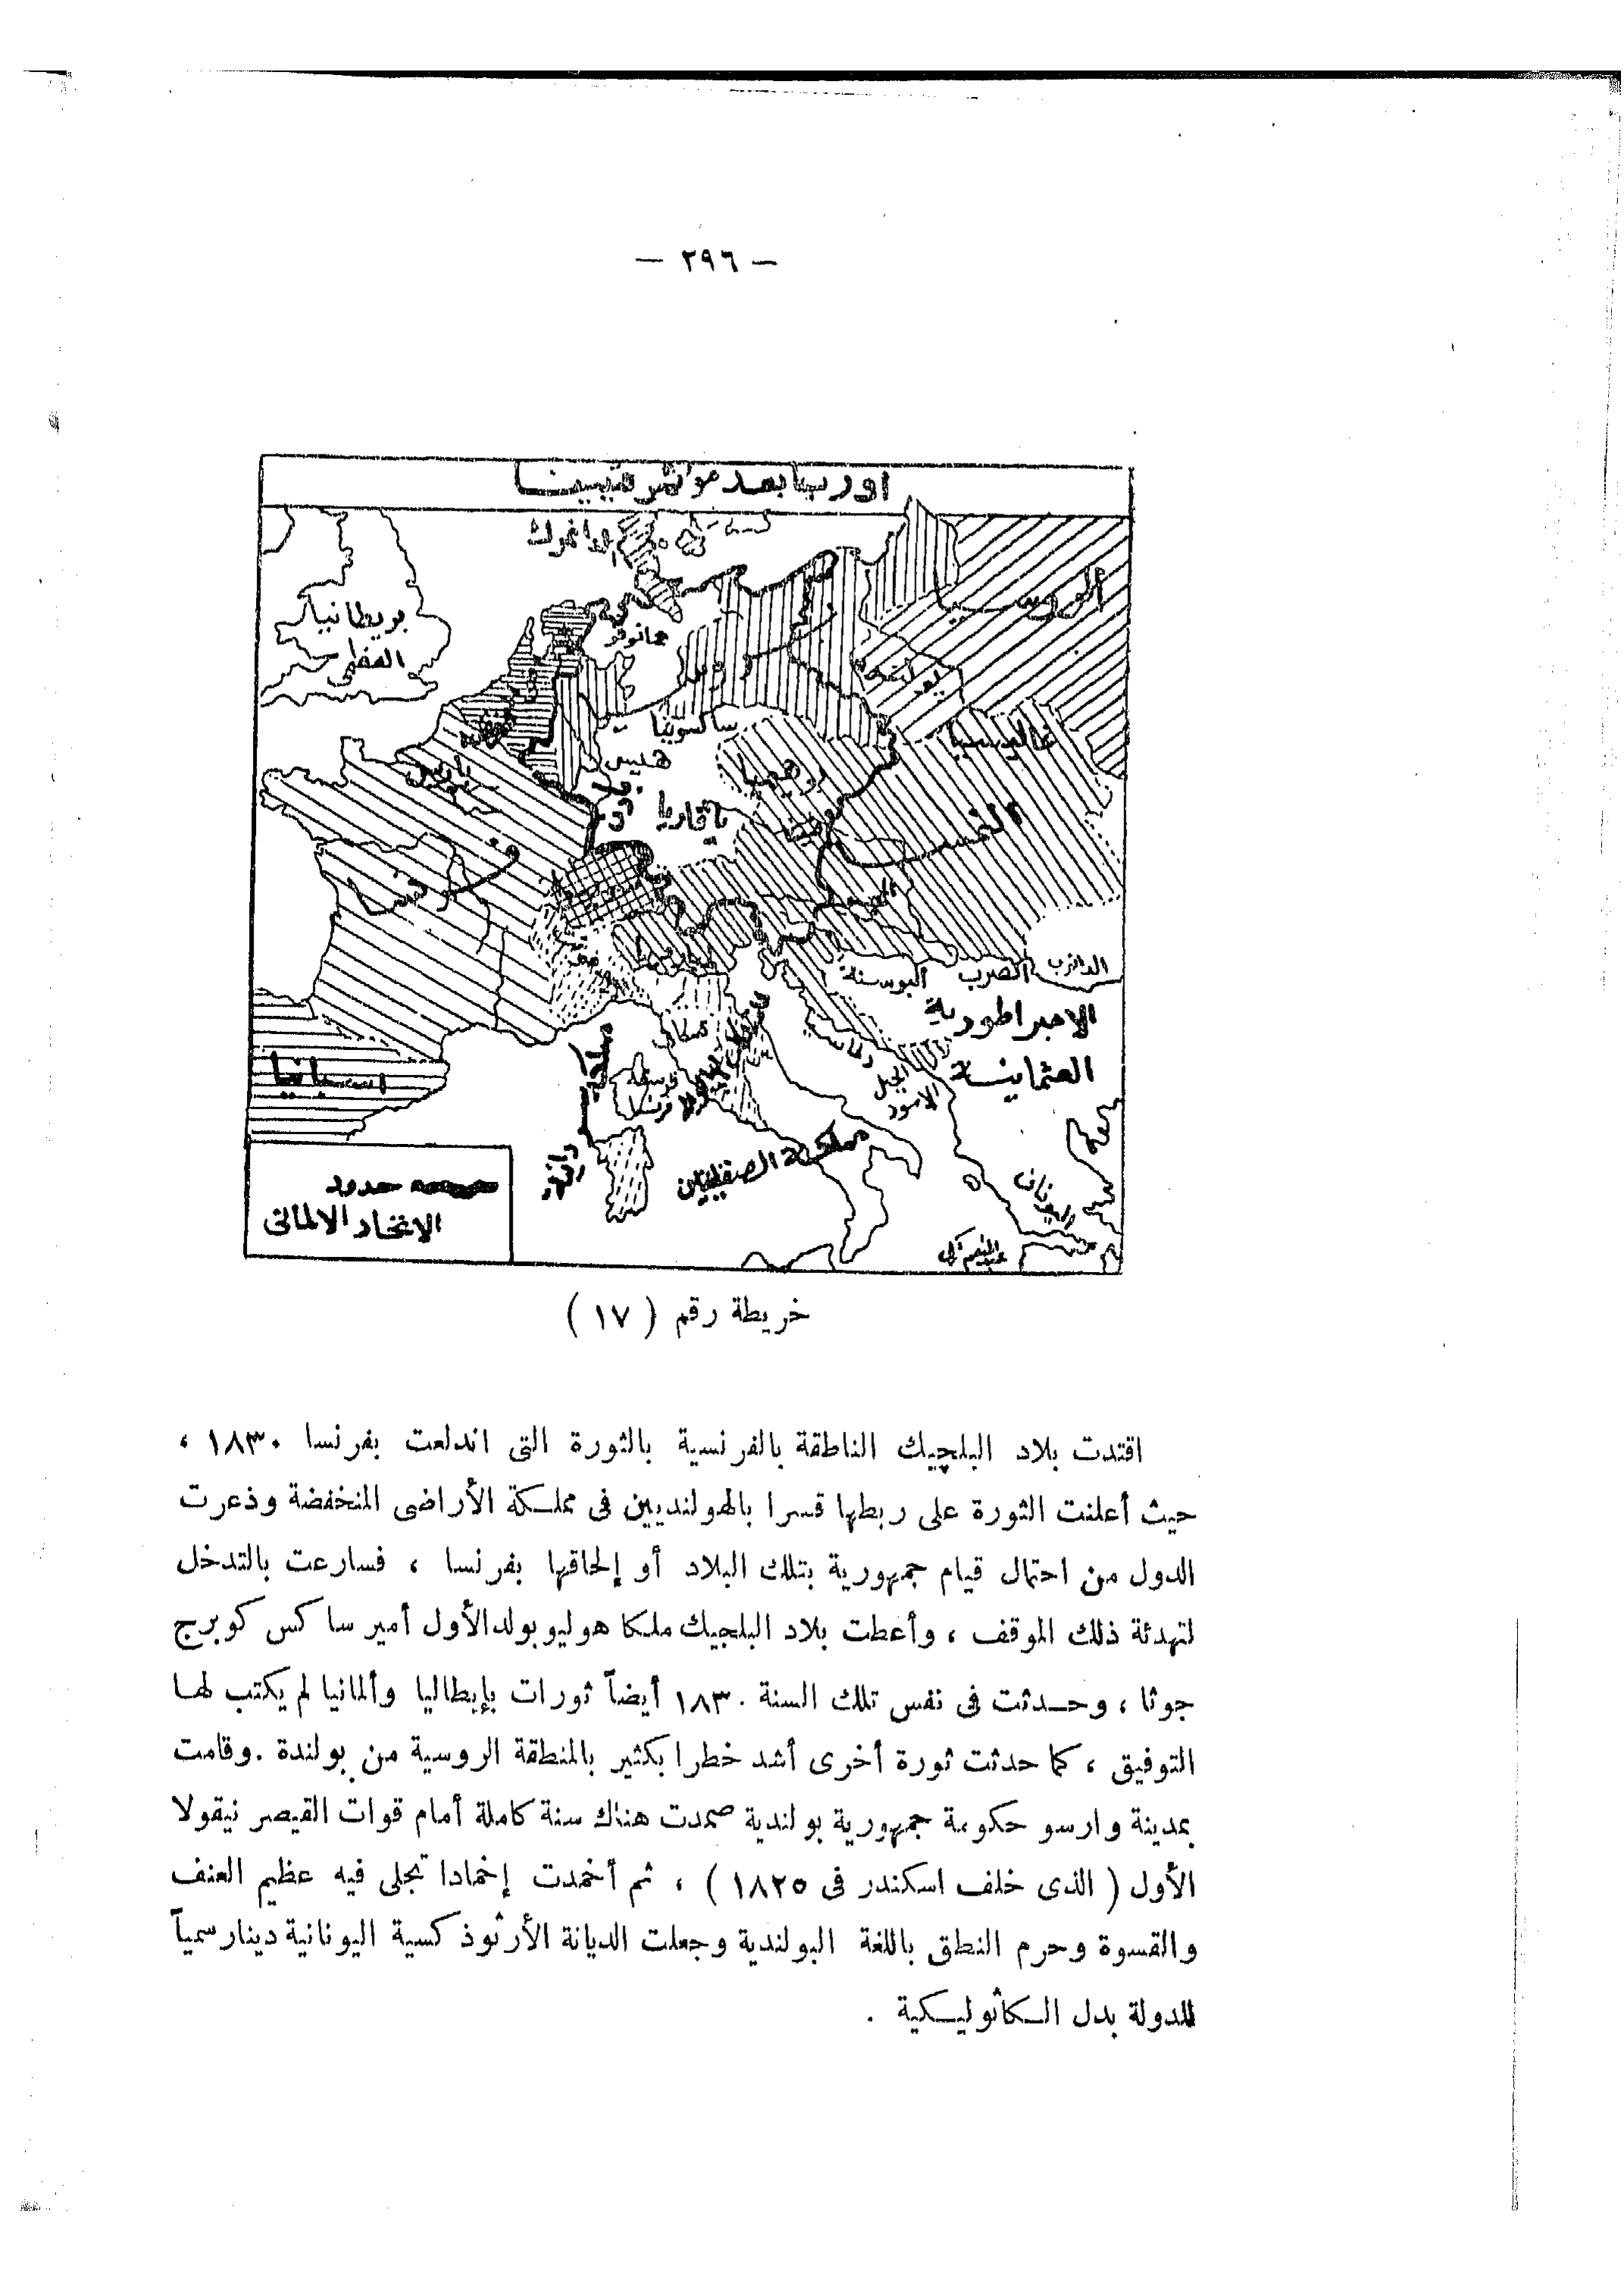 — ٢٩٦ —
اوربا بعد مؤتمر ڤيينا
الدانمرك
بريطانيا
العظمى
هانوفر
الروسيا
بولندا
ساكسونيا
غاليسيا
هيس
بوهيميا
باريس
باڤاريا
النمسا
فرنسا
المجر
البوسنة
الصرب
الدانوب
الامبراطورية
العثمانية
الجبل
الاسود
اسبانيا
مملكة الصقليتين
اليونان
حدود
الاتحاد الالمانى
خريطة رقم ( ١٧ )
اقتدت بلاد البلچيك الناطقة بالفرنسية بالثورة التى اندلعت بفرنسا ١٨٣٠ ،
حيث أعلنت الثورة على ربطها قسرا بالهولنديين فى مملكة الأراضى المنخفضة وذعرت
الدول من احتمال قيام جمهورية بتلك البلاد أو إلحاقها بفرنسا ، فسارعت بالتدخل
لتهدئة ذلك الموقف ، وأعطت بلاد البلجيك ملكا هو ليوبولد الأول أمير ساكس كوبرج
جوثا ، وحدثت فى نفس تلك السنة ١٨٣٠ أيضاً ثورات بإيطاليا وألمانيا لم يكتب لها
التوفيق ، كما حدثت ثورة أخرى أشد خطرا بكثير بالمنطقة الروسية من بولندة . وقامت
بمدينة وارسو حكومة جمهورية بولندية صمدت هناك سنة كاملة أمام قوات القيصر نيقولا
الأول ( الذى خلف اسكندر فى ١٨٢٥ ) ، ثم أخمدت إخمادا تجلى فيه عظيم العنف
والقسوة وحرم النطق باللغة البولندية وجعلت الديانة الأرثوذكسية اليونانية دينا رسمياً
للدولة بدل الكاثوليكية .